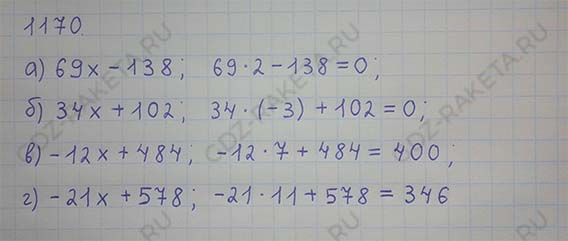 1170.
а) 69x − 138; 69 · 2 − 138 = 0;
б) 34x + 102; 34 · (−3) + 102 = 0;
в) −12x + 484; −12 · 7 + 484 = 400;
г) −21x + 578; −21 · 11 + 578 = 346
GDZ-RAKETA.RU
GDZ-RAKETA.RU